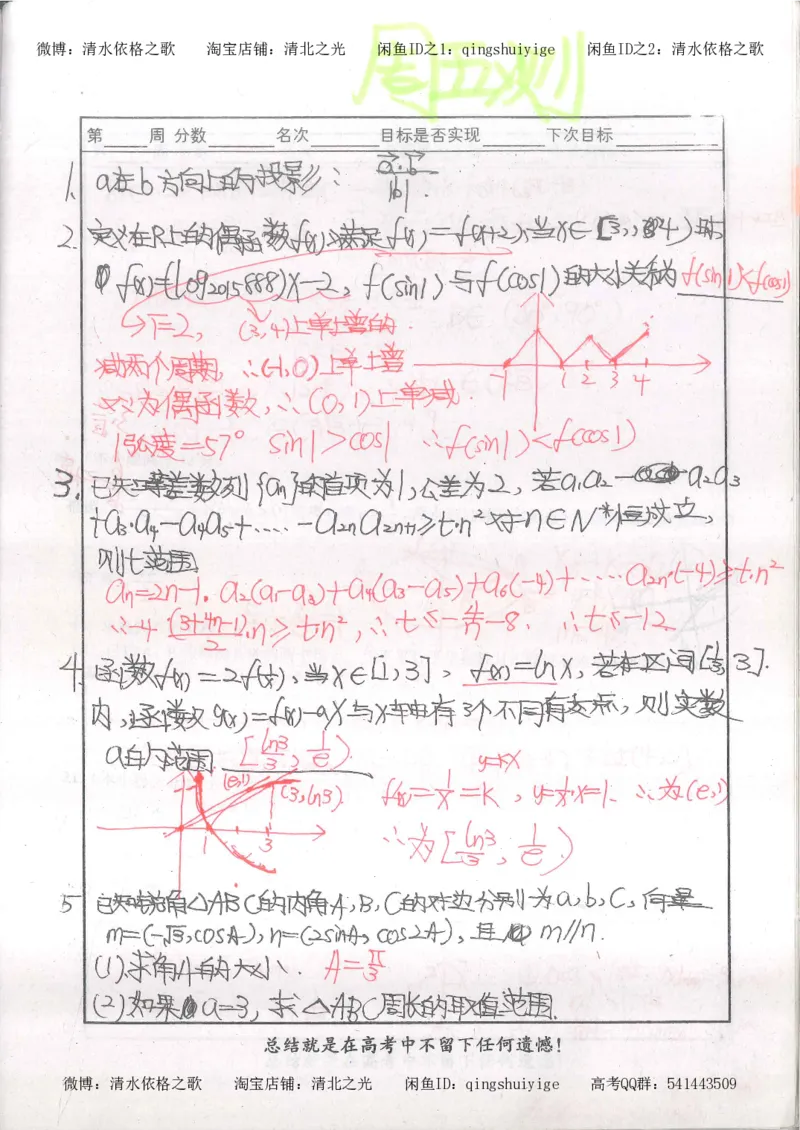 微博：清水依格之歌 淘宝店铺：清北之光 闲鱼ID之1：qingshuiyige 闲鱼ID之2：清水依格之歌
周五测
第____周 分数______名次______目标是否实现______下次目标______
1. a在b方向上的投影： a·b/|b|.
2. 定义在R上的偶函数f(x)满足f(x)=f(x+2),当x∈[3,4)时
f(x)=(log2015 888)x-2, f(sin1)与f(cos1)的大小关系为 f(sin1)<f(cos1)
↳T=2, (3,4)上单增的.
减两个周期, ∴(-1,0)上单增
又为偶函数, ∴(0,1)上单减.
-1 1 2 3 4
1弧度=57° sin1>cos1 ∴f(sin1)<f(cos1)
3. 已知等差数列{an}的首项为1,公差为2, 若a1a2-a2a3
+a3·a4-a4a5+....-a2na2n+1≥t·n²对n∈N*恒成立,
则t范围
an=2n-1. a2(a1-a3)+a4(a3-a5)+a6(-4)+....a2n·(-4)≥t·n²
∴-4 (3+4n-1)/2·n≥t·n², ∴t≤-4/n-8. ∴t≤-12.
4. 函数f(x)=2f(1/x), 当x∈[1,3], f(x)=lnx, 若在区间[1/3,3].
内,函数g(x)=f(x)-ax与x轴有3个不同有交点, 则实数
a的范围 [ln3/3, 1/e)
(e,1) (3,ln3) 1 3
y=kx
f(x)=1/x=k, y=1/x·x=1. ∴为(e,1)
∴为[ln3/3, 1/e)
5 已知锐角△ABC的内角A,B,C的对边分别为a,b,c, 向量
m=(-√3,cosA), n=(2sinA, cos2A), 且m//n.
(1)求角A的大小. A=π/3
(2)如果a=3, 求△ABC周长的取值范围.
总结就是在高考中不留下任何遗憾！
微博：清水依格之歌 淘宝店铺：清北之光 闲鱼ID：qingshuiyige 高考QQ群：541443509